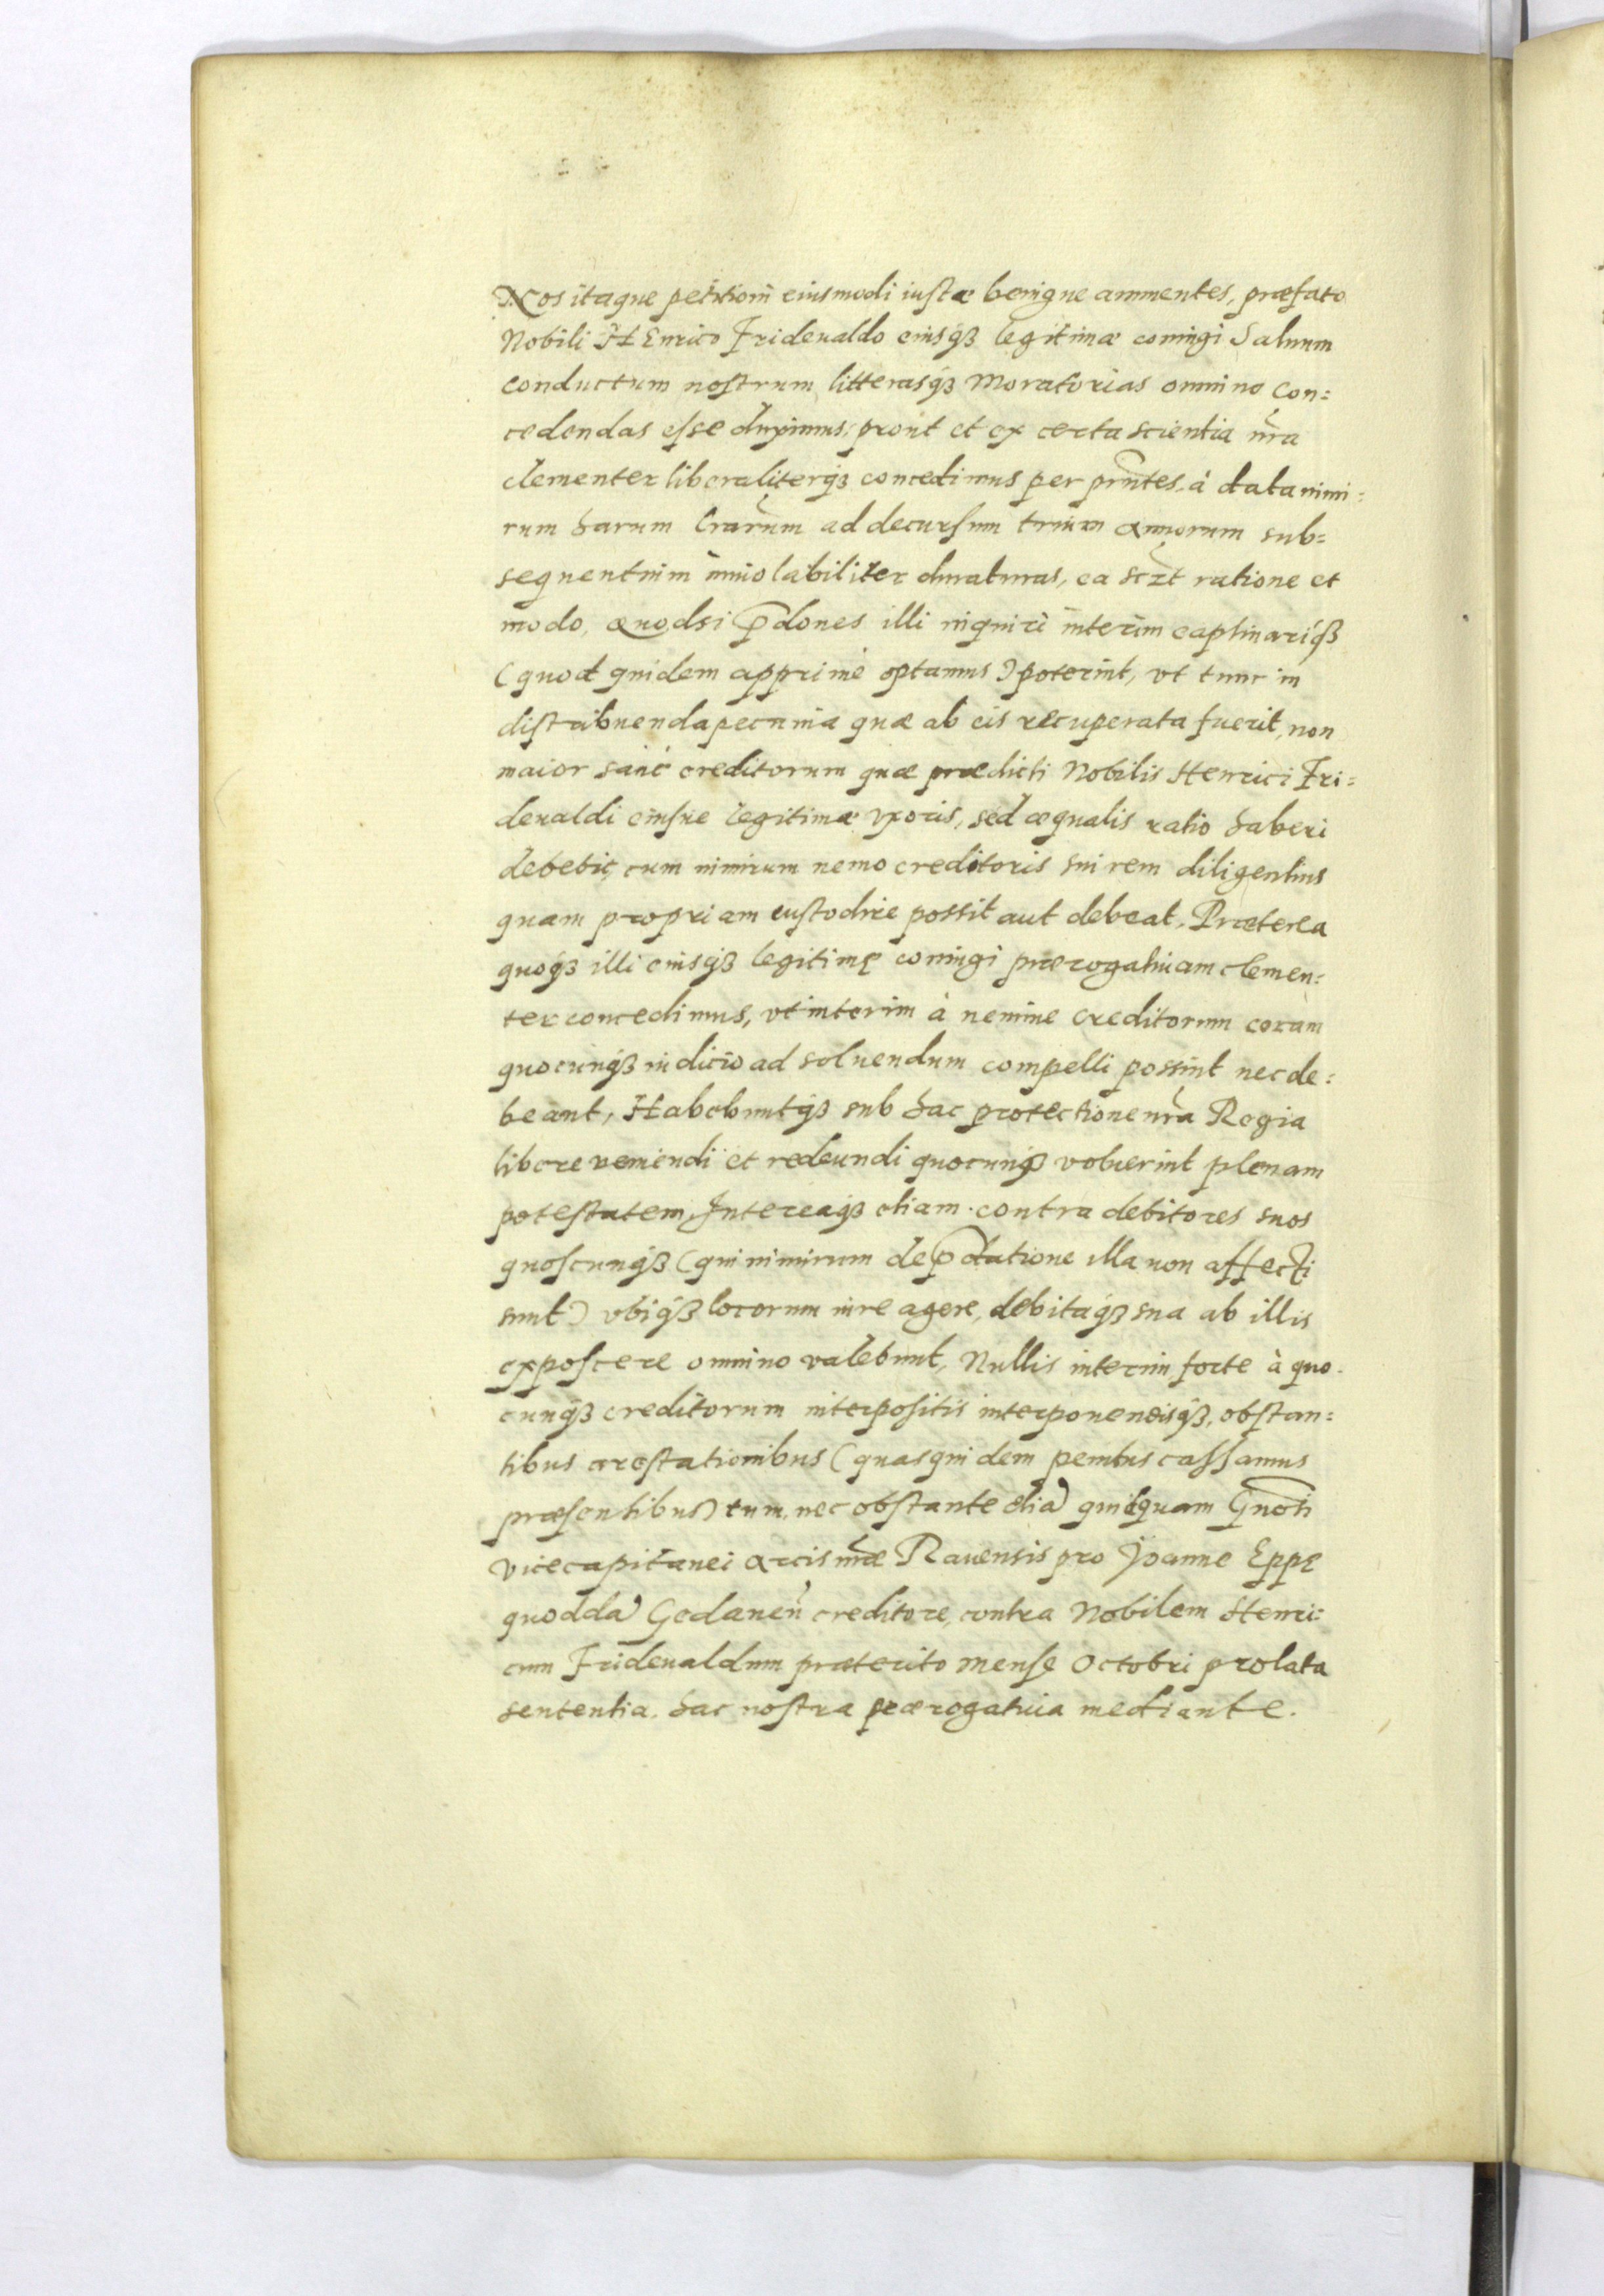 Nos itaque petitioni eiusmodi iustæ benigne annuentes, præfato
Nobili HEnrico Frideualdo eiusq́ꝫ legitimæ coniugi Saluum
conductum nostrum, litterasq́ꝫ Moratorias omnino con=
cedendas esse duximus: prout et ex certa scientia nr̃a
clementer liberaliterq́ꝫ concedimus per prñtes, à data nimi=
rum harum lrarũm ad decursum trium annorum sub=
sequentium inuiolabiliter duraturas, ea sczt ratione et
modo, quodsi p̃dones illi inquiri interim captiuariq́ꝫ
(quod quidem apprimè optamus) poterint, vt tunc in
distribuenda pecunia quæ ab eis recuperata fuerit, non
maior sanè creditorum quæ prædicti Nobilis Henrici Fri=
deualdi eiusue legitimæ vxoris, sed æqualis ratio haberi
debebit, cum nimirum nemo creditoris sui rem diligentius
quam propriam custodire possit aut debeat, Præterea
quoq́ꝫ illi eiusq́ꝫ legitimę coniugi prærogatiuam clemen=
ter concedimus, vt interim à nemine creditorum coràm
quocunq́ꝫ iudicio ad soluendum compelli possint nec de=
beant, Habebuntq́ꝫ sub hac protectione nr̃a Regia
libere veniendi et redeundi quocunq́ꝫ voluerint plenam
potestatem, Intereaq́ꝫ etiam contra debitores suos
quoscunq́ꝫ (qui nimirum dep̃datione illa non affecti
sunt) vbiq́ꝫ locorum iure agere, debitaq́ꝫ sua ab illis
exposcere omnino valebunt, Nullis interim forte à quo=
cunq́ꝫ creditorum interpositis interponendisq́ꝫ, obstan=
tibus arestationibus (quas quidem penitus cassamus
præsentibus) tum, nec obstante etiã quicquam Gnosi
vicecapitanei arcis nræ̃ Rauensis pro Joanne Eppę
quoddã Gedaneñ creditore, contra Nobilem Henri=
cum Fridenaldum præterito mense Octobri prolata
sententia, hac nostra prærogatiua mediante.